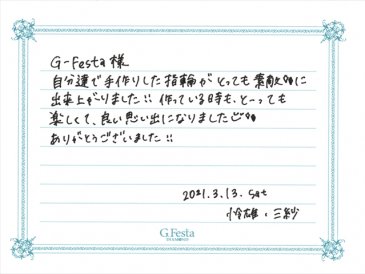 G-Festa 様
自分達で手作りした指輪がとっても素敵に
出来上がりました!! 作っている時も、とーっても
楽しくて、良い思い出になりました
ありがとうございました!!
2021.3.13. Sat
怜雄・三紗
G.Festa
DIAMOND